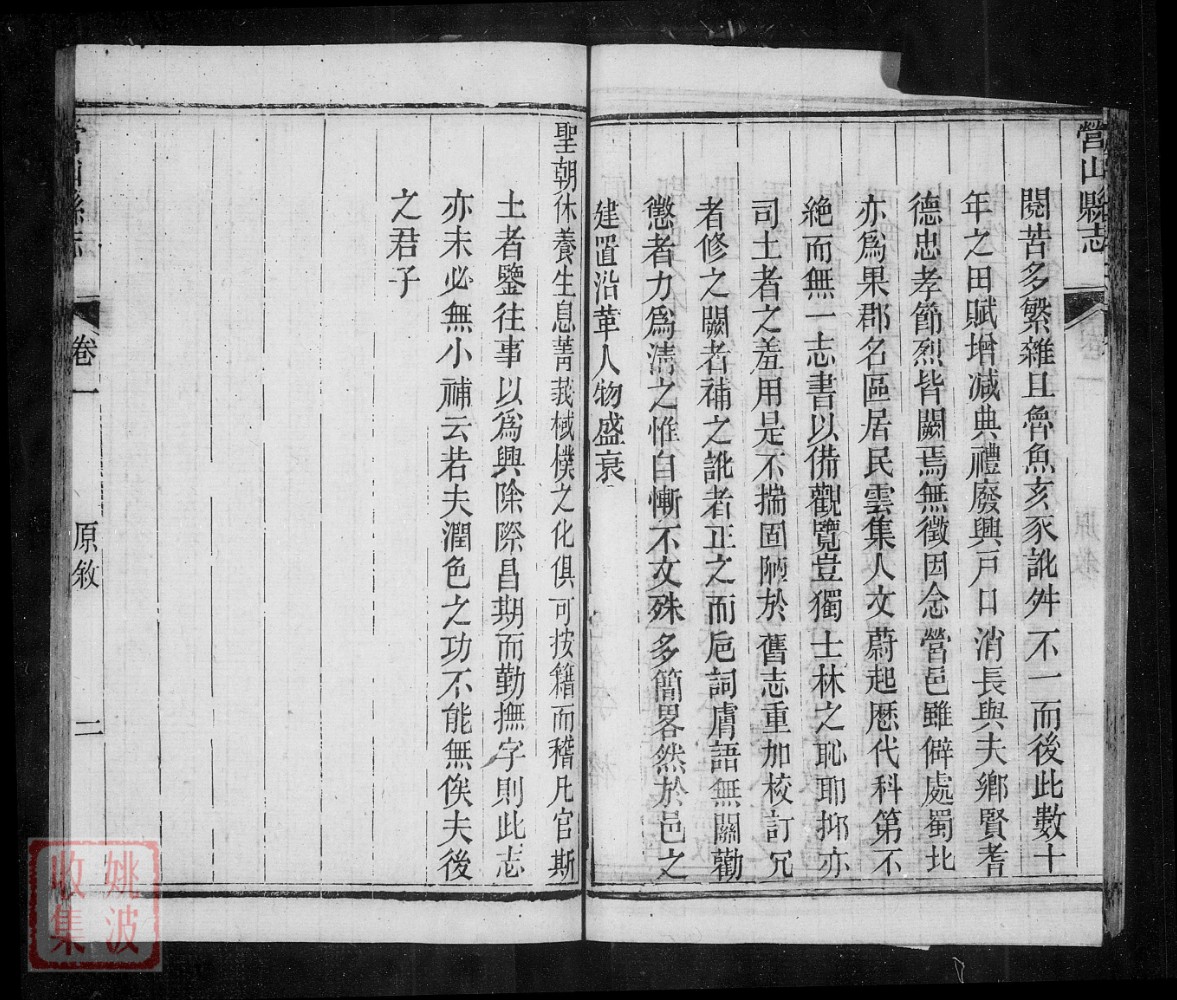 營山縣志
閱苦多繁雜且魯魚亥豕訛舛不一而後此數十
年之田賦增減典禮廢興戸口消長與夫鄉賢耆
德忠孝節烈皆闕焉無徵因念營邑雖僻處蜀北
亦爲果郡名區居民雲集人文蔚起歷代科第不
絶而無一志書以備觀覽豈獨士林之恥耶抑亦
司土者之羞用是不揣固陋於舊志重加校訂冗
者修之闕者補之訛者正之而巵詞膚語無關勸
懲者力爲淸之惟自慚不文殊多簡畧然於邑之
建置沿革人物盛衰
聖朝休養生息菁莪棫樸之化俱可按籍而稽凡官斯
土者鑒往事以爲興除際昌期而勤撫字則此志
亦未必無小補云若夫潤色之功不能無俟夫後
之君子
營山縣志
卷一
原敘
二
姚波
收集